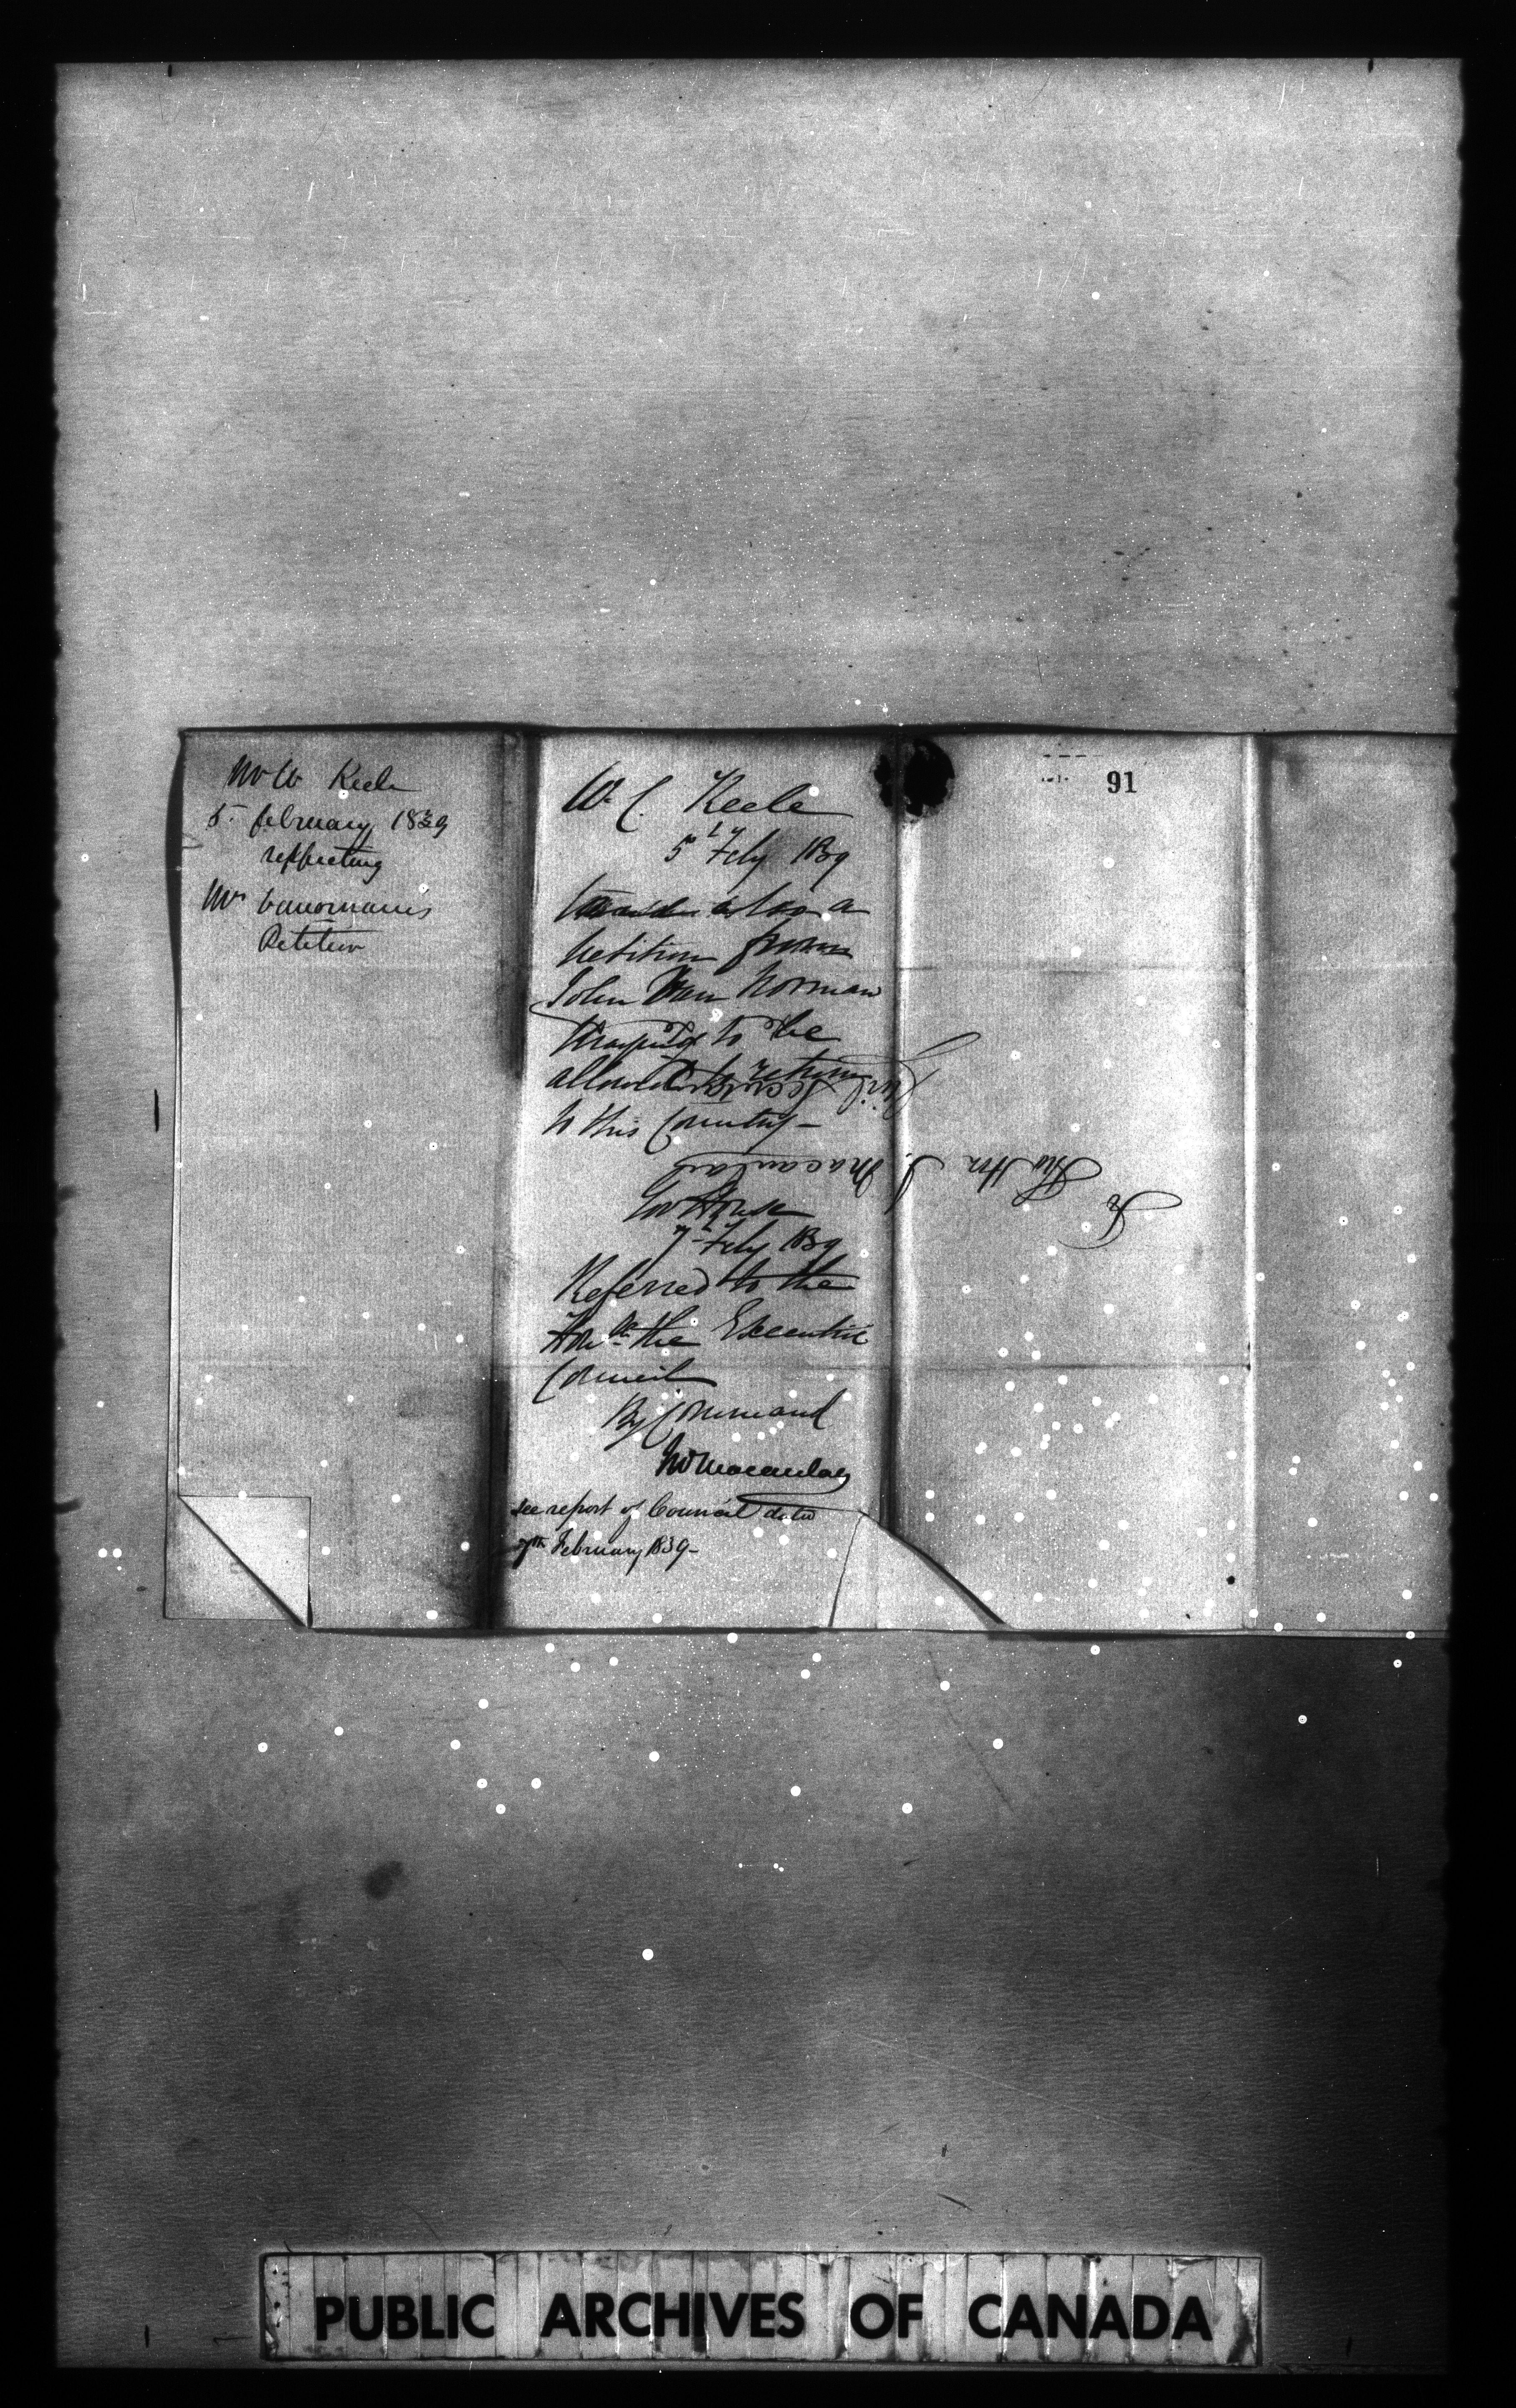 Mr W Keele
5 february 1839
respecting
Mr Vannorman's
Petition
W. C. Keele
5 Feby 1839
also a
petition from
John Van Norman
to be
allowed to return
to this Country -
Gov House
7 Feby 1839
Referred to the
Honble the Executive
Council
By Command
Jno Macaulay
see report of Council dated
7th February 1839-
91
To
The Hon J. Macaulay
Civil Secretary
PUBLIC ARCHIVES OF CANADA